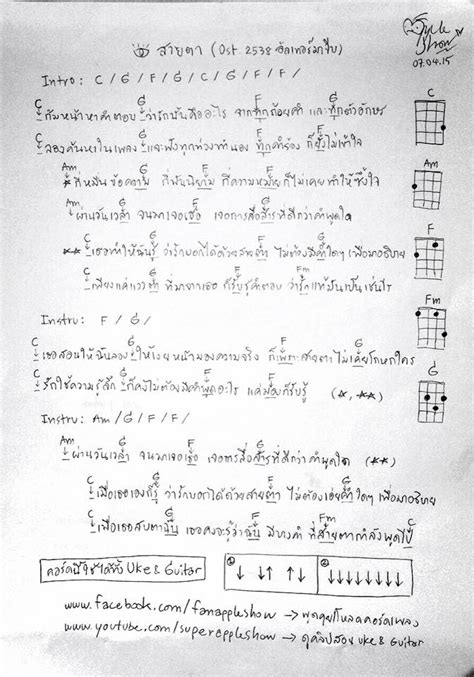 สายตา (Ost. 2538 อัลเทอร์มาจีบ)
Apple Show
07.04.15
Intro: C / G / F / G / C / G / F /
C G F G
ก้มหน้าหาคำตอบ ว่ารักมันคืออะไร จากทุกถ้อยคำ และทุกตัวอักษร
C G F G
ลองค้นหาในเพลง และฟังทุกท่วงทำนอง ทุกคำร้อง ก็ยังไม่เข้าใจ
Am G F G
* กี่หมื่นข้อความ กี่พันนิยาม กี่ความหมาย ก็ไม่เคยทำให้ซึ้งใจ
Am G F G
ผ่านวันเวลา จนมาเจอเธอ เจอการสื่อสารที่ดีกว่าคำพูดใด
C G F G
** เธอทำให้ฉันรู้ ว่ารักบอกได้ด้วยสายตา ไม่ต้องมีคำใดๆ เพื่อมาอธิบาย
C G F Fm
เพียงแค่แววตา ที่มาจากเธอ ก็รับรู้คำตอบ ว่ารักแท้มันเป็นเช่นไร
Instru: F / G /
C G F G
เธอสอนให้ฉันลอง ให้เงยหน้ามองความจริง ก็เพราะสายตา ไม่เคยโกหกใคร
C G F G
รักใช้ความรู้สึก ก็คงไม่ต้องมีคำพูดอะไร แค่มองก็รับรู้ (*, **)
Instru: Am / G / F / F /
Am G F G
ผ่านวันเวลา จนมาเจอเธอ เจอการสื่อสารที่ดีกว่าคำพูดใด (**)
C G F G
เมื่อเธอเองก็รู้ ว่ารักบอกได้ด้วยสายตา ไม่ต้องเอ่ยคำใดๆ เพื่อมาอธิบาย
C G F Fm C
เมื่อเธอสบตาฉัน เธอคงจะรู้ว่าฉัน มีบางคำ ที่สายตากำลังพูดไป
C
Am
F
Fm
G
คอร์ดนี้ใช้ได้ทั้ง Uke & Guitar
① ↓ ↓↑ ↑↓ ↑
② ↓↓↓↓↓↓↓↓
www.facebook.com/fanappleshow → พูดคุยโหลดคอร์ดเพลง
www.youtube.com/superappleshow → ดูคลิปสอน Uke & Guitar